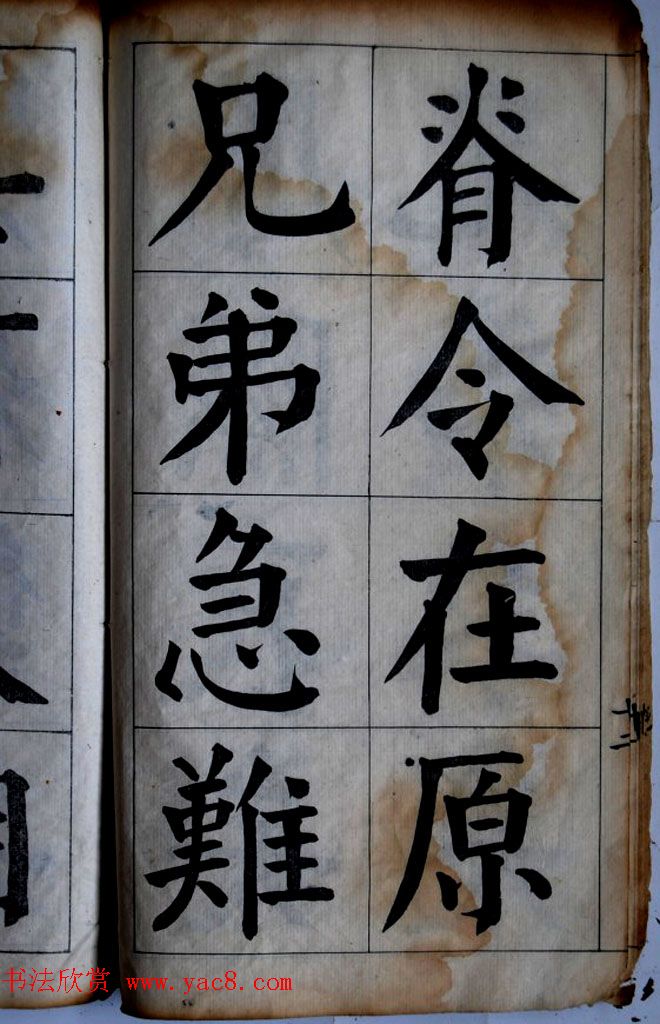 脊令在原
兄弟急難
书法欣赏 www.yac8.com